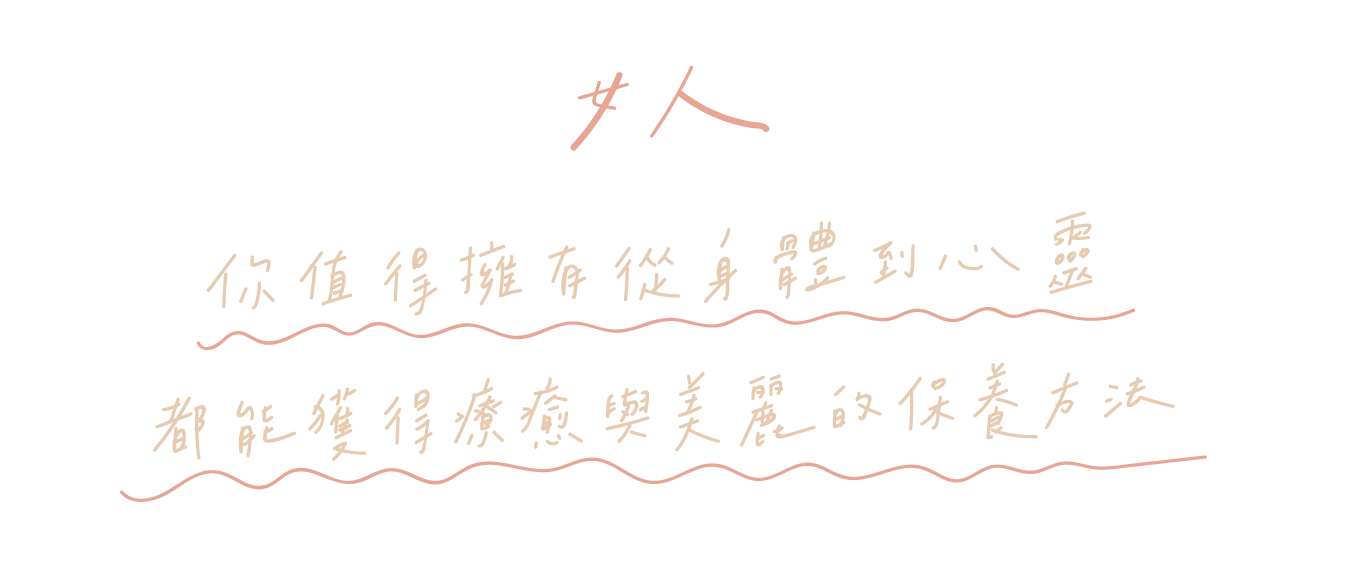 女人
你值得擁有從身體到心靈
都能獲得療癒與美麗的保養方法